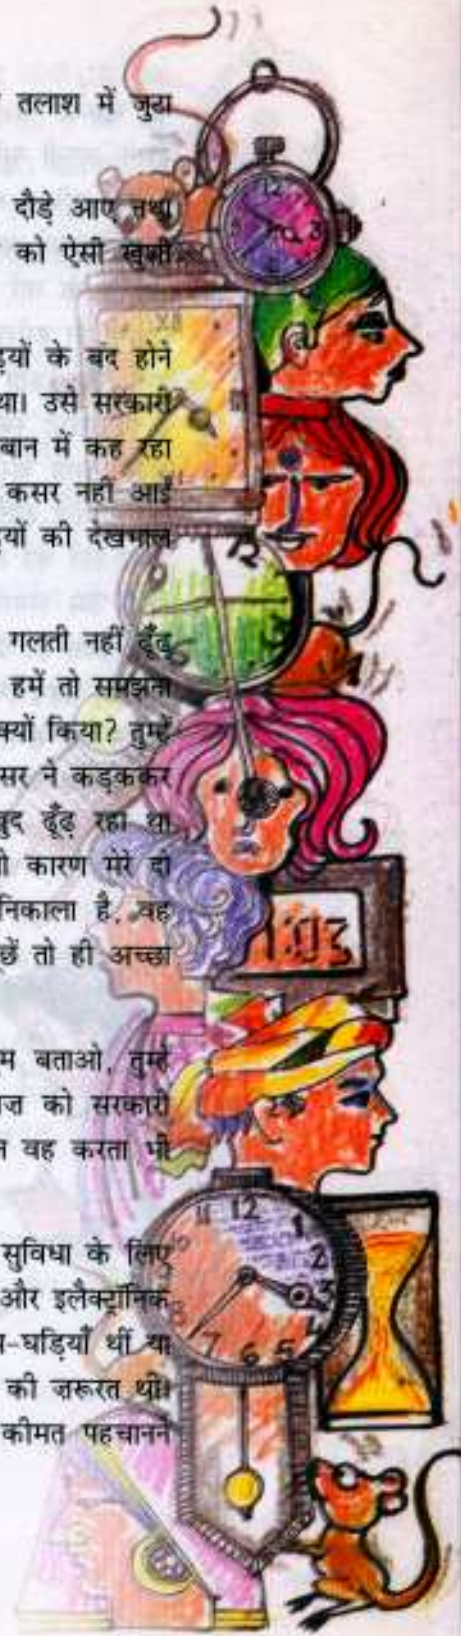 तलाश में जुटा
दौड़े आए तथा
को ऐसी खुशी
ड़ियों के बंद होने
था। उसे सरकारी
बान में कह रहा
कसर नहीं आई
ड़ियों की देखभाल
गलती नहीं ढूँढ़
हमें तो समझना
क्यों किया? तुम्हें
सर ने कड़ककर
खुद ढूँढ़ रहा था
कारण मेरे दो
निकाला है, वह
छें तो ही अच्छा
म बताओ, तुम्हें
को सरकारी
वह करता भी
सुविधा के लिए
और इलैक्ट्रॉनिक
-घड़ियाँ थीं या
की ज़रूरत थी।
कीमत पहचानने
12
3
XII
12
1:03
11 12 1
2
3
4
7 6 5